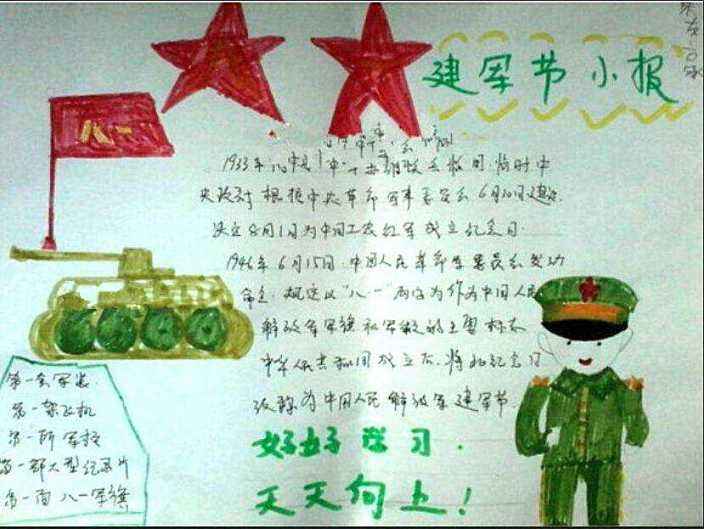 建军节小报
八一
1933年
央政府根据中央革命军事委员会6月30日建议
决定8月1日为中国工农红军成立纪念日.
1946年6月15日,中国人民革命军事委员会发
命令,规定以"八一"两字为作为中国人民
解放军军旗和军徽的主要标志
中华人民共和国成立后,将此纪念日
改称为中国人民解放军建军节
好好学习.
天天向上!
第一套军装.
第一架飞机
第一所军校
第一部大型纪录片
第一面八一军旗